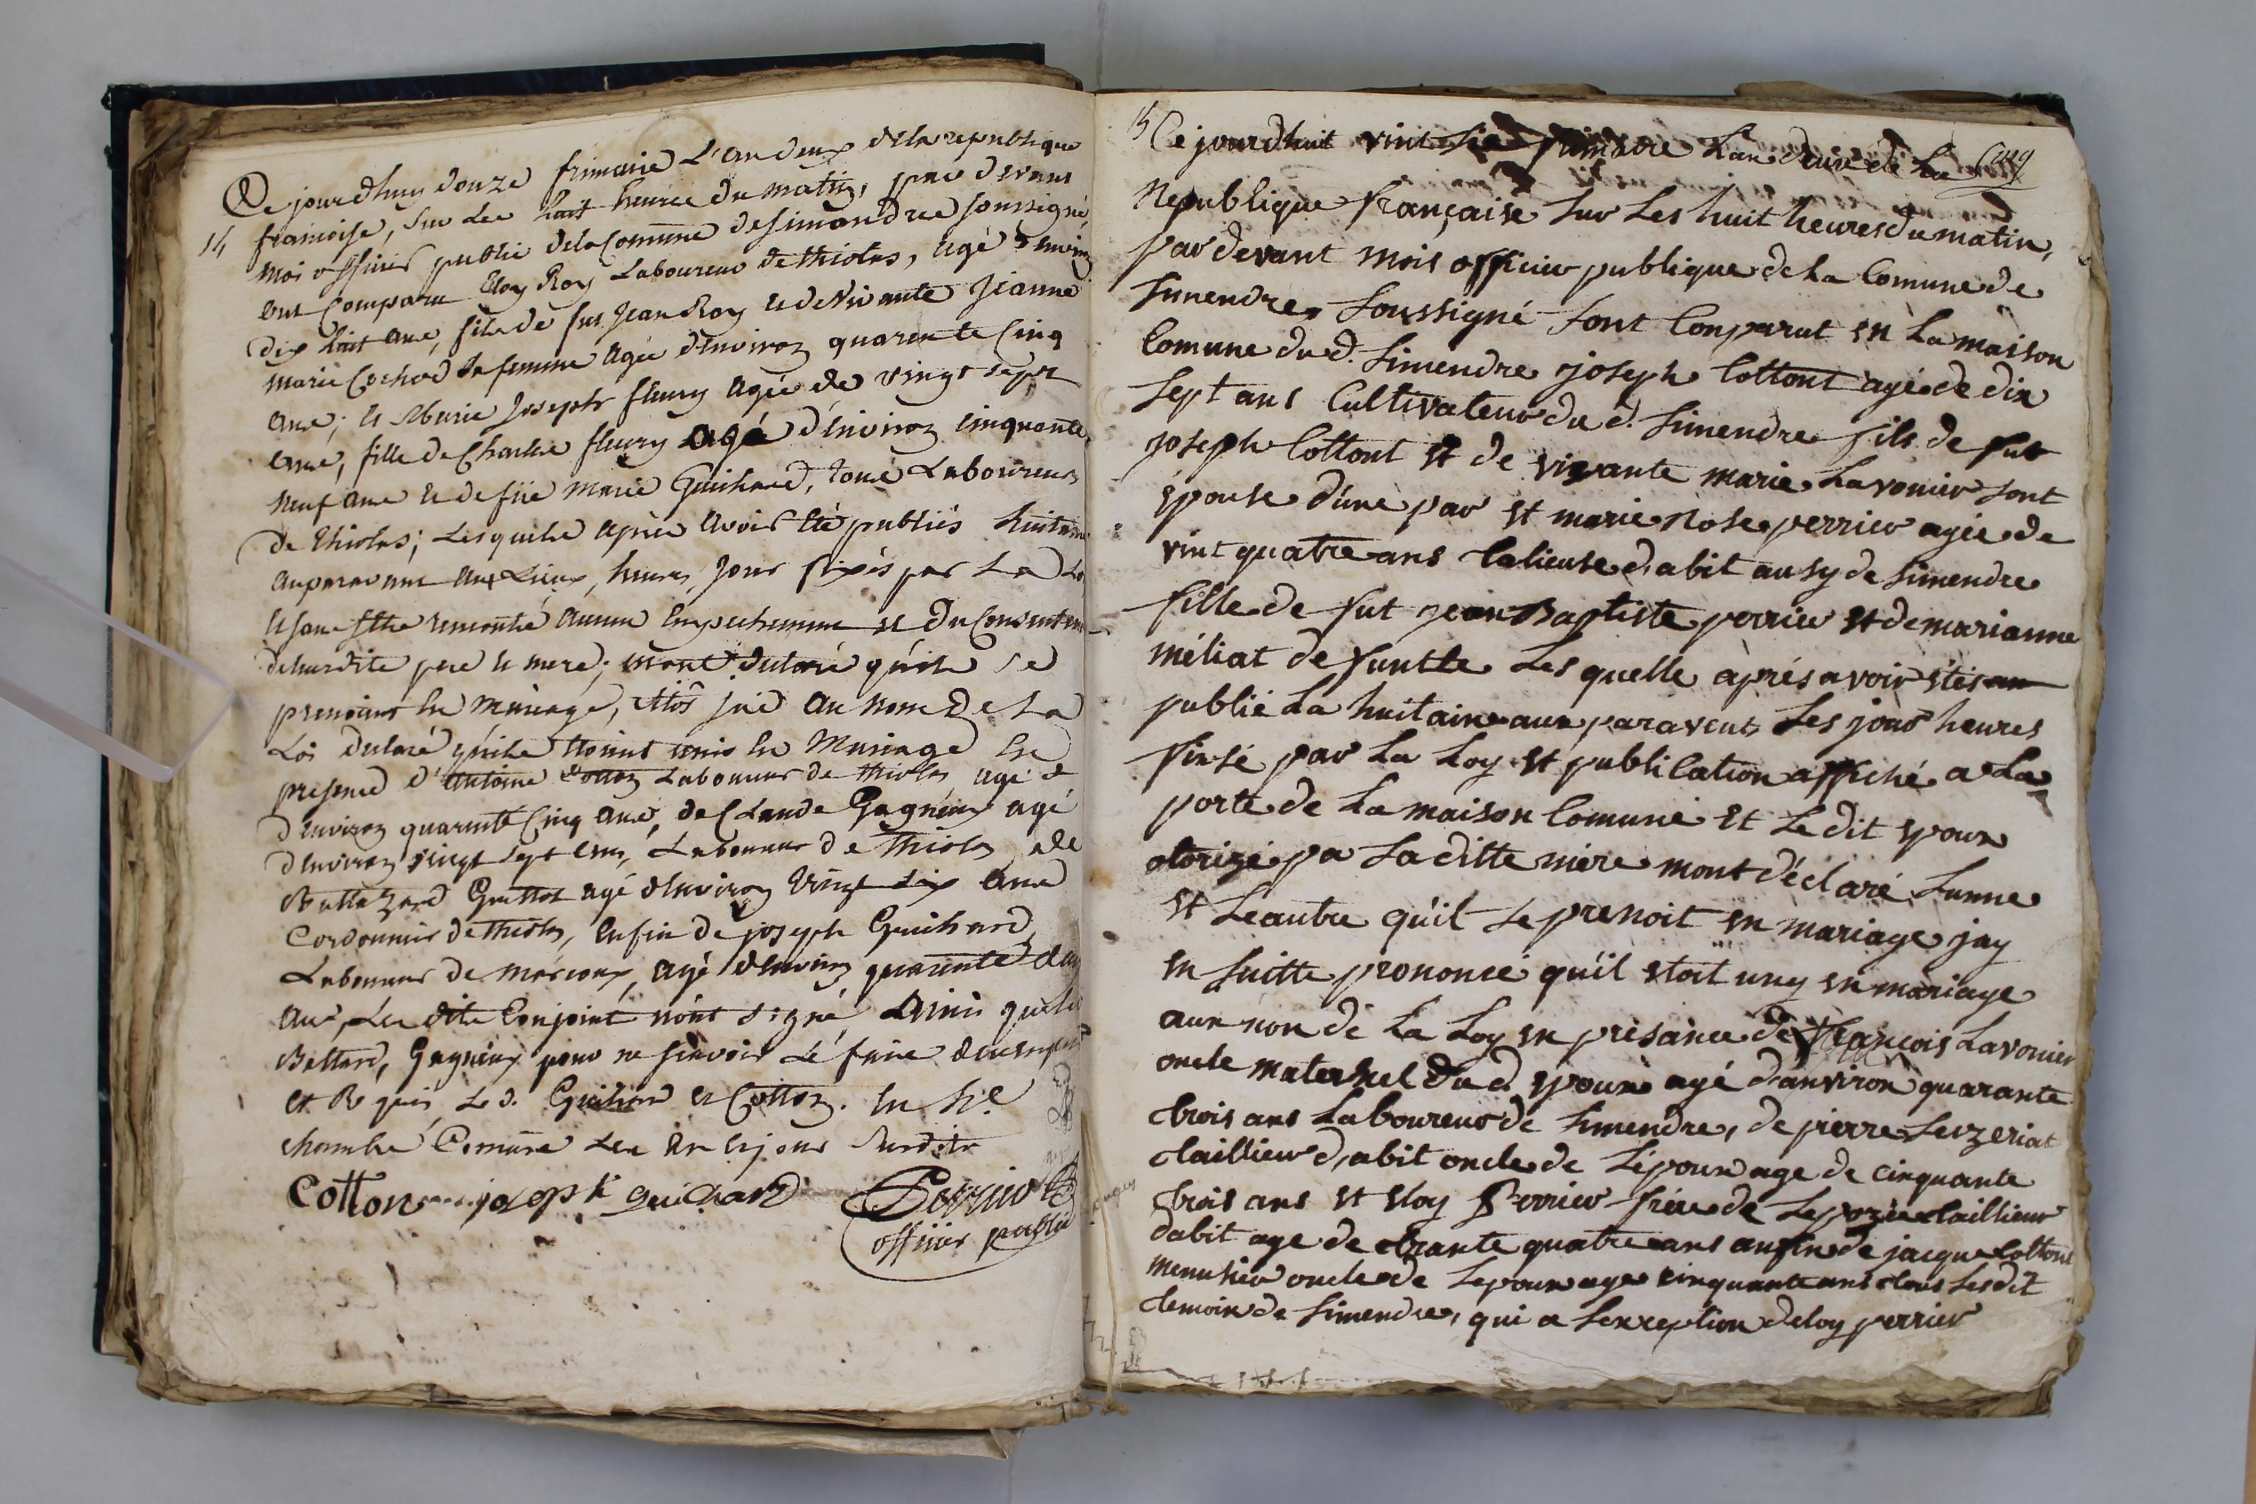 Ce jourdhuy douze frimaire L'an deux dela republique
14 francoise, sur les huit heures du matin, par devant
moi officier public dela Comune desimandre soussigné
ont Comparu Eloy Roy Laboureur de thiolas, agé d'environ
dix huit ans, fils de fut Jean Roy et de vivante Jeanne
marie Cochard sa femme agée d'environ quarante Cinq
ans; et marie Josephe fleury agée de vingt sept
ans, fille de Charles fleury agé d'environ cinquante
neuf ans et de füe marie Guichard, tous Laboureurs
de thiolas; Lesquels après avoir été publiés huitaine
auparavant aux Lieux, heures, jour fixés par La Lo
et sans s'etre rencontré aucun Empechement et du Consentem
desurdits pere et mere; mont declaré qu'ils se
prenoient en mariage, jai au nom de La
Loi declaré qu'ils étoient unis en Mariage En
presence d'antoine Cotton Laboureur de thiolas agé
d'environ quarante Cinq ans, de Claude Gagneux agé
d'environ vingt sept ans, Laboureur de thiolas, de
Baltazard agé d'environ vingt six ans
Cordonnier de thiolas, enfin de joseph Guichard
Laboureur de , agé d'environ quarante deux
ans, Les dits Conjoint n'ont signé, ainsi que
, Gagneux pour ne sçavoir Le faire de ce enquis
et Requis, Le d. Guichard et Cotton. En
chambre Comune Les an et jour Susdits
Cotton joseph guichard Perrier
officier public
15 Ce jourdhuit vint six frimaire Lan deux de La
Republique française sur Les huit heures du matin,
pardevant mois officier publique de La Comune de
simendre, soussigné sont Comparut en La maison
Comune du d. simendre joseph Cottont agé de dix
sept ans Cultivateur du d. simendre fils de fut
joseph Cottont et de vivante marie Lavonier sont
epouse d'une par et marie Rose perrier agée de
vint quatre ans talieuse d,abit ausy de simendre
fille de fut jean Baptiste perrier et de marianne
méliat defuntte Les quelle après avoir étés
publié La huitaine aux paravent Les jour heures
fixsé par La Loy et publication affiché a La
porte de La maison Comune et Le dit epoux
otorizé pa sa ditte mère mont déclaré Lunne
et Leautre qu'il se prenoit en mariage jay
en suitte prononcé qu'il etoit uny en mariage
aux non de La Loy en présance de françois Lavonier
oncle maternel du d. epoux agé d'anviron quarante
trois ans Laboureur de simendre, de pierre
taillieur d,abit oncle de L'époux age de cinquante
trois ans et eloy Perrier frére de Lepoze taillieur
dabit age de trante quatre ans anfin de jacque Cottont
menusier oncle de Lepoux age cinquante ans tous Lesdit
temoin de simendre, qui a Lexception deloy perrier